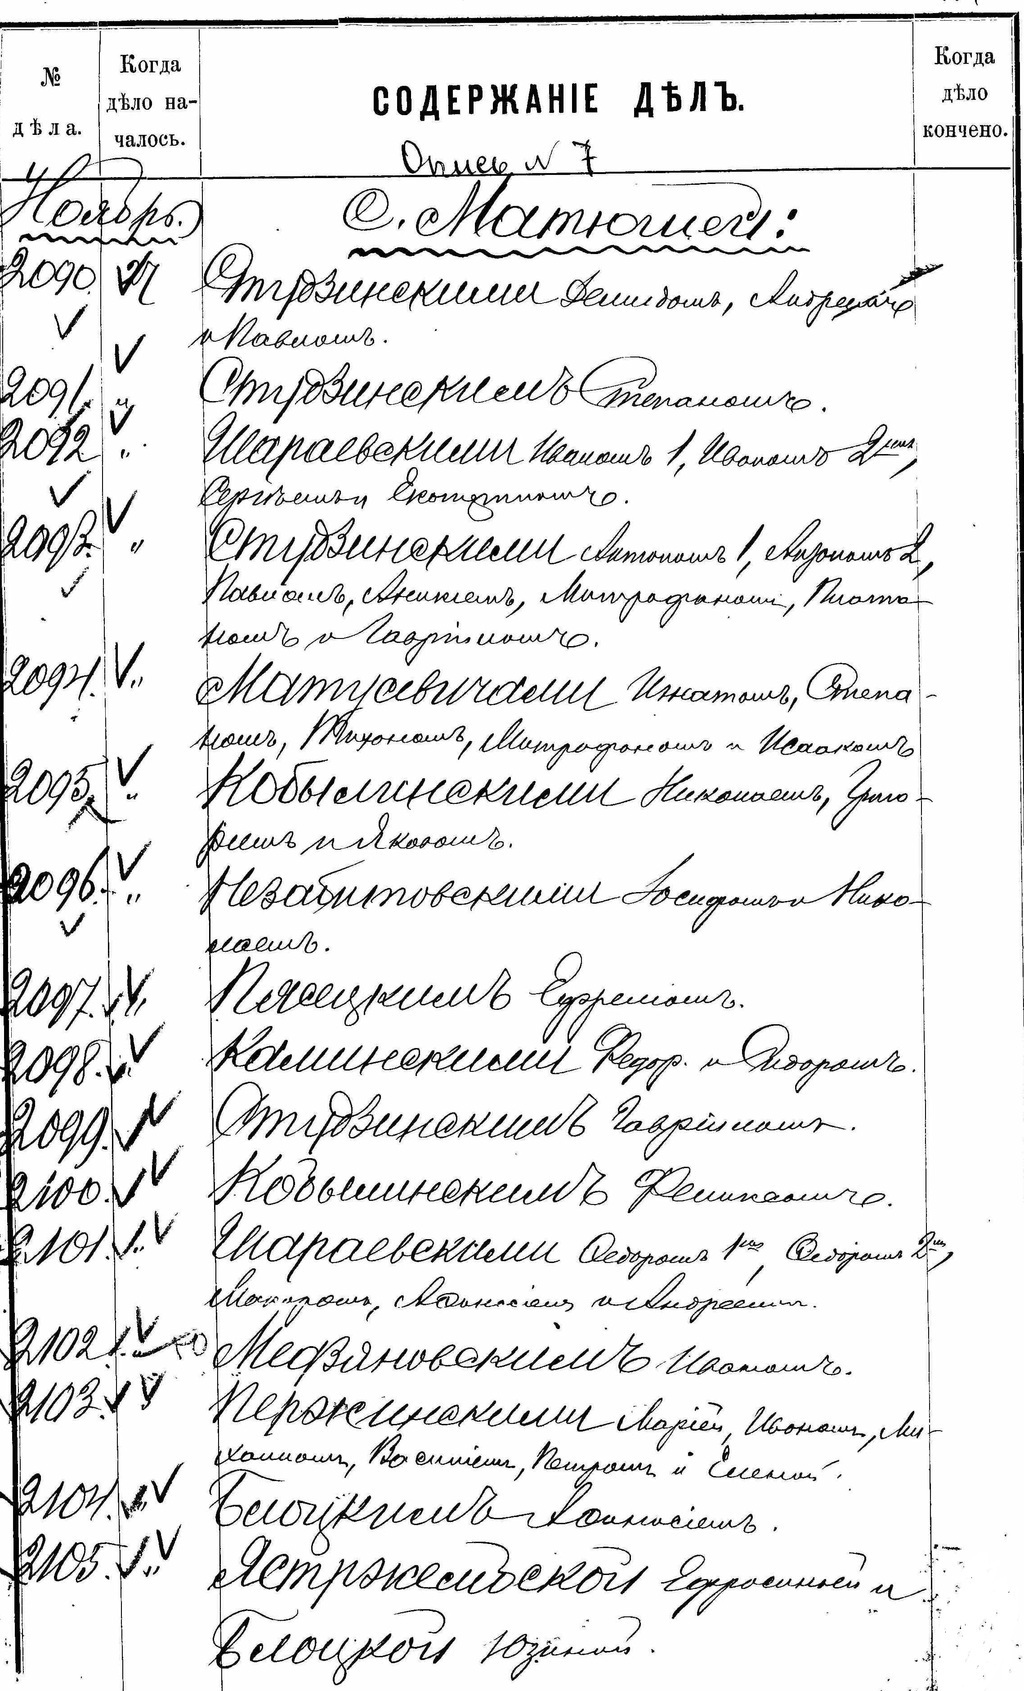 № дѣла.
Когда дѣло началось.
СОДЕРЖАНІЕ ДѢЛЪ.
Когда дѣло кончено.
Опись N 7
Ноябрь.
С. Матюшей:
2090. 27 Струзинскими Демидомъ, Андреемъ
и Павломъ.
2091. „ Струзинскимъ Степаномъ.
2092 „ Шараевскими Иваномъ 1, Иваномъ 2мъ,
Сергѣемъ и
2093. „ Струзинскими Антономъ 1, Антономъ 2,
Павломъ, Митрофаномъ, Плато-
номъ и Гавріиломъ.
2094. „ Матусевичами Игнатомъ, Степа-
номъ, Тихономъ, Митрофаномъ и Исаакомъ
2095 „ Кобылинскими Николаемъ, Григо-
ріемъ и Яковомъ.
2096. „ Незабитовскими Іосифомъ и Нико-
лаемъ.
2097. „ Пясецкимъ Ефремомъ.
2098. „ Каминскими Федор. и Сидоромъ.
2099. „ Струзинскимъ Гавріиломъ.
2100. „ Кобылинскимъ Феликсомъ.
2101. „ Шараевскими Федоромъ 1мъ, Федоромъ 2мъ,
Макаромъ, Афанасіемъ и Андреемъ.
2102 „ Иваномъ.
2103. „ Пержинскими Маріей, Иваномъ, Ми-
хаиломъ, Василіемъ, Петромъ и Еленой.
2104. „ Блоцкимъ Афанасіемъ.
2105. „ Ястржембской Ефросиніей и
Блоцкой Юзиной.